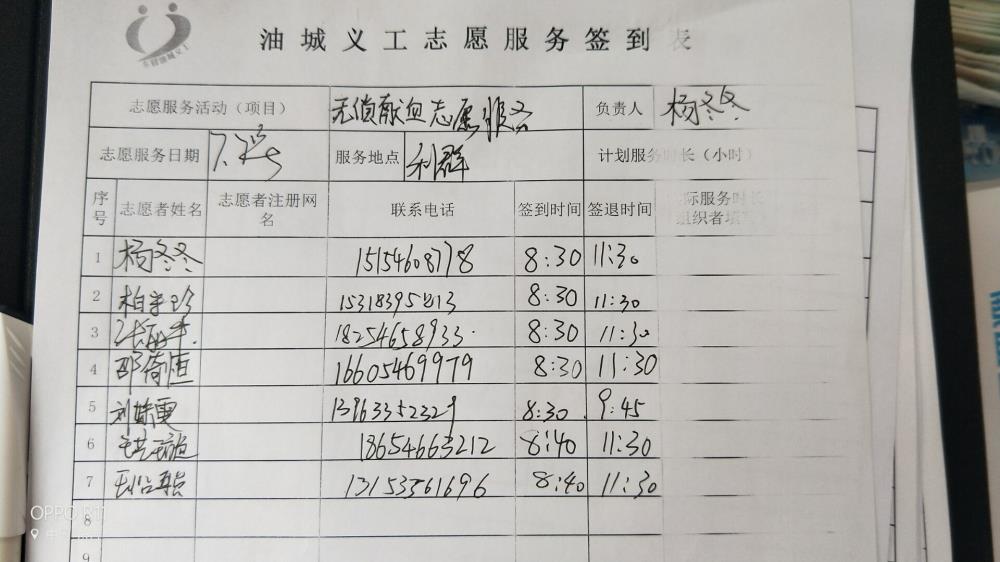 油城义工志愿服务签到表
志愿服务活动（项目） 无偿献血志愿服务 负责人 杨冬冬
志愿服务日期 服务地点 利群 计划服务时长（小时）
序号 志愿者姓名 志愿者注册网名 联系电话 签到时间 签退时间 实际服务时长 组织者填写
1 杨冬冬 15154608778 8:30 11:30
2 15318395813 8:30 11:30
3 18254658933 8:30 11:30
4 邵倚恒 16605469979 8:30 11:30
5 13963352329 8:30 9:45
6 18654663212 8:40 11:30
7 13153561696 8:40 11:30
8
9
OPPO R11